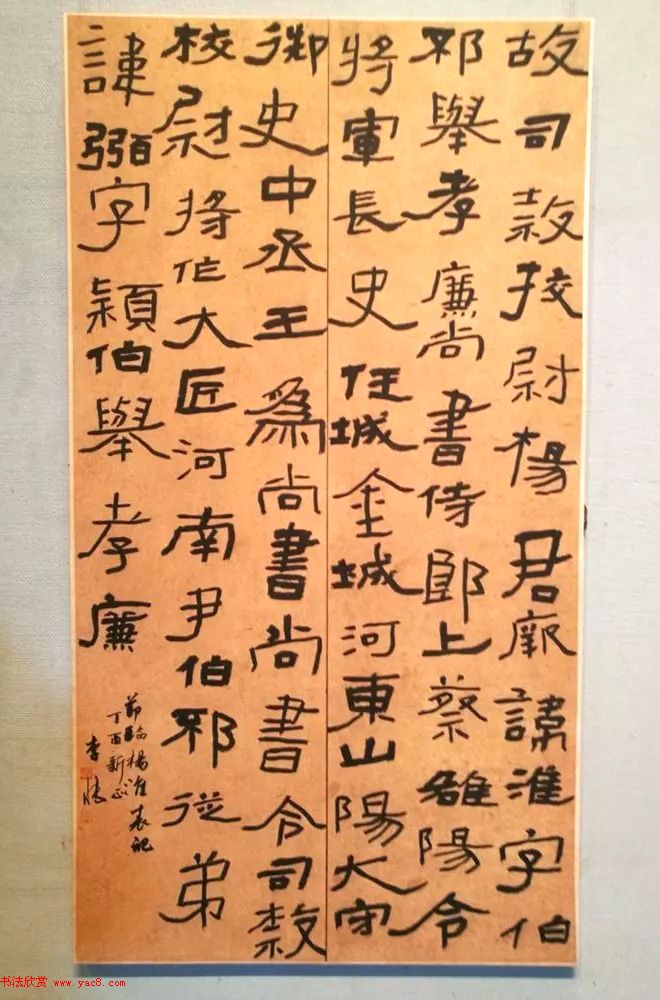 故司隸校尉楊君厥諱淮字伯
邳舉孝廉尚書侍郎上蔡雒陽令
將軍長史任城金城河東山陽大守
御史中丞王為尚書尚書令司隸
校尉將作大匠河南尹伯邳從弟
諱弼字穎伯舉孝廉
節臨楊淮表記
丁酉新正
李
书法欣赏 www.yac8.com